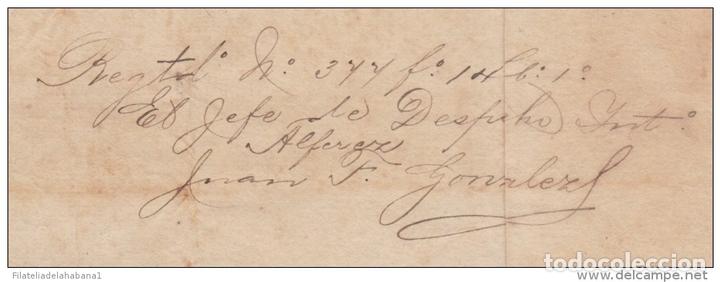 Regtdº Nº 377 fº 14 lº 1º
El Jefe de Despcho Intº
Alferez
Juan F. Gonzalez
todocoleccion
Filateliadelahabana1
todocoleccion.net